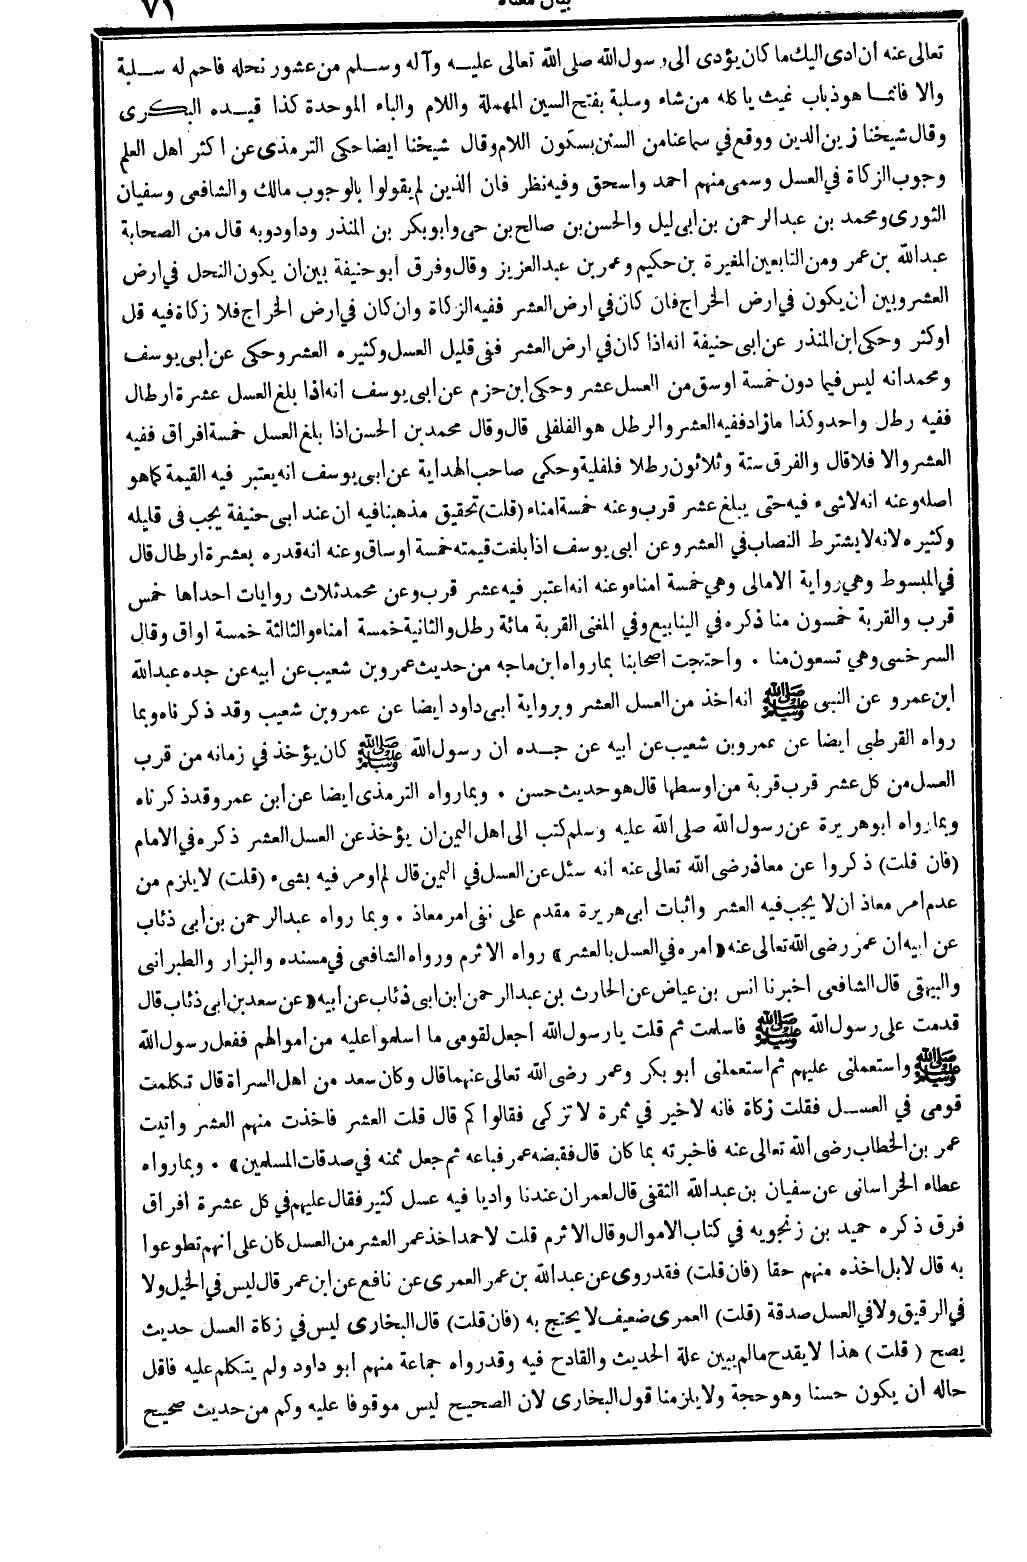 بيان معناه ٧١
تعالى عنه ان ادى اليك ما كان يؤدى الى رسول الله صلى الله تعالى عليه وآله وسلم من عشور نحله فاحم له سلبة
والا فانما هو ذباب غيث ياكله من شاء وسلبة بفتح السين المهملة واللام والباء الموحدة كذا قيده البكرى
وقال شيخنا زين الدين ووقع في سماعنا من السنن بسكون اللام وقال شيخنا ايضا حكى الترمذى عن اكثر اهل العلم
وجوب الزكاة في العسل وسمى منهم احمد واسحق وفيه نظر فان الذين لم يقولوا بالوجوب مالك والشافعى وسفيان
الثورى ومحمد بن عبد الرحمن بن ابى ليل والحسن بن صالح بن حى وابو بكر بن المنذر وداود وبه قال من الصحابة
عبد الله بن عمر ومن التابعين المغيرة بن حكيم وعمر بن عبد العزيز وقال وفرق أبو حنيفة بين ان يكون النحل في ارض
العشر وبين أن يكون في ارض الخراج فان كان في ارض العشر ففيه الزكاة وان كان في ارض الخراج فلا زكاة فيه قل
او كثر وحكى ابن المنذر عن ابى حنيفة انه اذا كان في ارض العشر ففى قليل العسل وكثيره العشر وحكى عن ابى يوسف
ومحمد انه ليس فيما دون خمسة اوسق من العسل عشر وحكى ابن حزم عن ابى يوسف انه اذا بلغ العسل عشرة ارطال
ففيه رطل واحد وكذا مازاد ففيه العشر والرطل هو الفلفلى قال وقال محمد بن الحسن اذا بلغ العسل خمسة افراق ففيه
العشر والا فلا قال والفرق ستة وثلاثون رطلا فلفلية وحكى صاحب الهداية عن ابى يوسف انه يعتبر فيه القيمة كما هو
اصله وعنه انه لاشىء فيه حتى يبلغ عشر قرب وعنه خمسة امناء (قلت) تحقيق مذهبنا فيه ان عند ابى حنيفة يجب فى قليله
وكثيره لانه لا يشترط النصاب في العشر وعن ابى يوسف اذا بلغت قيمته خمسة اوساق وعنه انه قدره بعشرة ارطال قال
في المبسوط وهي رواية الامالى وهي خمسة امناء وعنه انه اعتبر فيه عشر قرب وعن محمد ثلاث روايات احداها خمس
قرب والقربة خمسون منا ذكره في الينابيع وفي المغنى القربة مائة رطل والثانية خمسة امناء والثالثة خمسة اواق وقال
السرخسى وهي تسعون منا . واحتجت اصحابنا بما رواه ابن ماجه من حديث عمرو بن شعيب عن ابيه عن جده عبد الله
ابن عمرو عن النبى ﷺ انه اخذ من العسل العشر وبرواية ابى داود ايضا عن عمرو بن شعيب وقد ذكرناه وبما
رواه القرطبى ايضا عن عمرو بن شعيب عن ابيه عن جده ان رسول الله ﷺ كان يؤخذ في زمانه من قرب
العسل من كل عشر قرب قربة من اوسطها قال هو حديث حسن . وبما رواه الترمذى ايضا عن ابن عمر وقد ذكرناه
وبما رواه ابو هريرة عن رسول الله صلى الله عليه وسلم كتب الى اهل اليمن ان يؤخذ عن العسل العشر ذكره في الامام
(فان قلت) ذكروا عن معاذ رضى الله تعالى عنه انه سئل عن العسل في اليمن قال لم اومر فيه بشىء (قلت) لا يلزم من
عدم امر معاذ ان لا يجب فيه العشر واثبات ابى هريرة مقدم على نفى امر معاذ . وبما رواه عبد الرحمن بن ابى ذئاب
عن ابيه ان عمر رضى الله تعالى عنه «امره في العسل بالعشر» رواه الاثرم ورواه الشافعى في مسنده والبزار والطبرانى
والبيهقى قال الشافعى اخبرنا انس بن عياض عن الحارث بن عبد الرحمن ابن ابى ذئاب عن ابيه «عن سعد بن ابى ذئاب قال
قدمت على رسول الله ﷺ فاسلمت ثم قلت يا رسول الله اجعل لقومى ما اسلموا عليه من اموالهم ففعل رسول الله
ﷺ واستعملنى عليهم ثم استعملنى ابو بكر وعمر رضى الله تعالى عنهما قال وكان سعد من اهل السراة قال تكلمت
قومى في العسل فقلت زكاة فانه لاخير في ثمرة لا تزكى فقالوا كم قال قلت العشر فاخذت منهم العشر واتيت
عمر بن الخطاب رضى الله تعالى عنه فاخبرته بما كان قال فقبضه عمر فباعه ثم جعل ثمنه في صدقات المسلمين» . وبما رواه
عطاء الخراسانى عن سفيان بن عبد الله الثقفى قال لعمر ان عندنا واديا فيه عسل كثير فقال عليهم في كل عشرة افراق
فرق ذكره حميد بن زنجويه في كتاب الاموال وقال الاثرم قلت لاحمد اخذ عمر العشر من العسل كان على انهم تطوعوا
به قال لا بل اخذه منهم حقا (فان قلت) فقد روى عن عبد الله بن عمر العمرى عن نافع عن ابن عمر قال ليس في الخيل ولا
في الرقيق ولا في العسل صدقة (قلت) العمرى ضعيف لا يحتج به (فان قلت) قال البخارى ليس في زكاة العسل حديث
يصح (قلت) هذا لا يقدح مالم يبين علة الحديث والقادح فيه وقد رواه جماعة منهم أبو داود ولم يتكلم عليه فاقل
حاله أن يكون حسنا وهو حجة ولا يلزمنا قول البخارى لان الصحيح ليس موقوفا عليه وكم من حديث صحيح